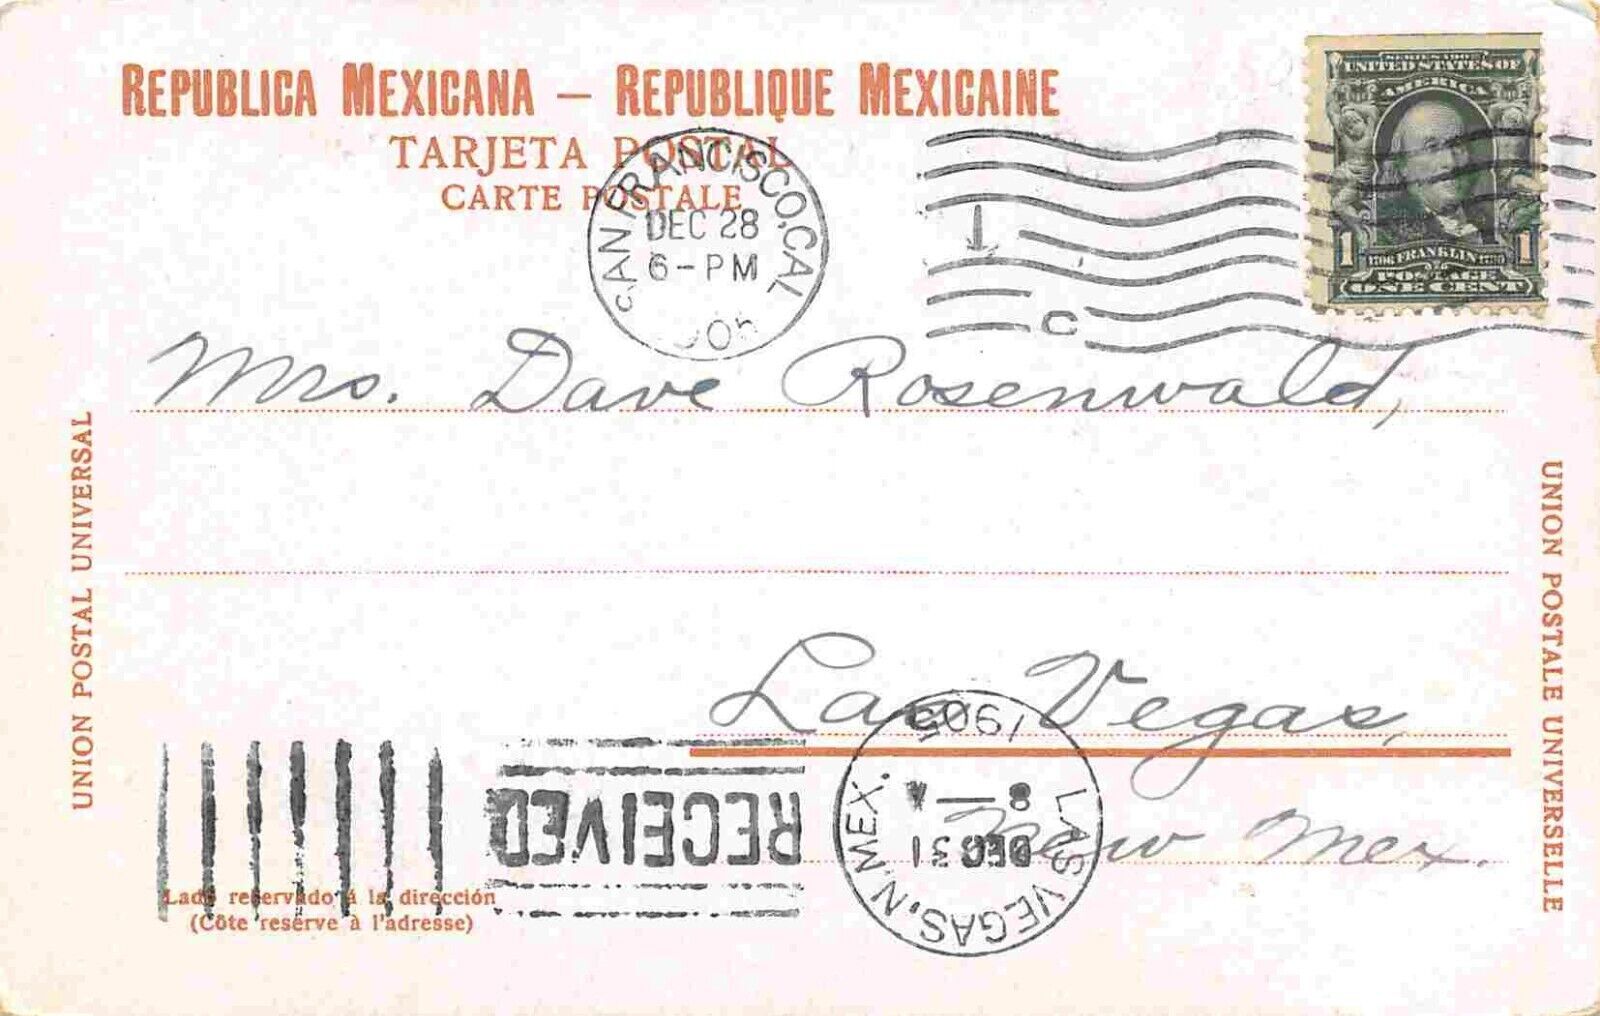 REPUBLICA MEXICANA — REPUBLIQUE MEXICAINE
TARJETA POSTAL
CARTE POSTALE
SAN FRANCISCO, CAL
DEC 28
6-PM
SERIES 1902
UNITED STATES OF
AMERICA
1 1706 FRANKLIN 1790 1
POSTAGE
ONE CENT
C
Mrs. Dave Rosenwald,
UNION POSTAL UNIVERSAL
UNION POSTALE UNIVERSELLE
Las Vegas,
New Mex.
RECEIVED
LAS VEGAS, N. MEX.
DEC 31
8—A
1905
Lado reservado á la dirección
(Côte resérve à l'adresse)